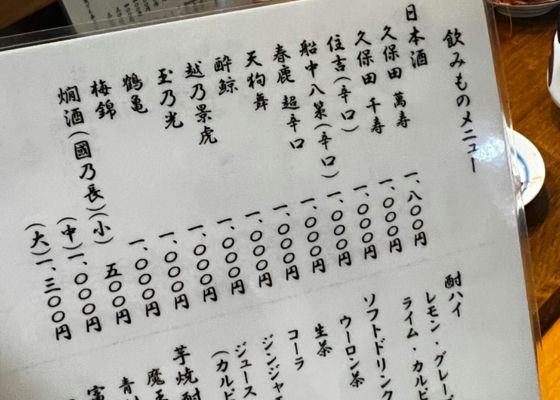 飲みものメニュー
日本酒
久保田 萬寿 一、八〇〇円
久保田 千寿 一、〇〇〇円
住吉(辛口) 一、〇〇〇円
船中八策(辛口) 一、〇〇〇円
春鹿 超辛口 一、〇〇〇円
天狗舞 一、〇〇〇円
酔鯨 一、〇〇〇円
越乃景虎 一、〇〇〇円
玉乃光 一、〇〇〇円
鶴亀 一、〇〇〇円
梅錦 一、〇〇〇円
燗酒(國乃長)(小) 五〇〇円
(中) 一、〇〇〇円
(大) 一、三〇〇円
酎ハイ
レモン・グレー
ライム・カルピ
ソフトドリンク
ウーロン茶
生茶
コーラ
ジンジャエ
ジュース
(カルピ
芋焼酎
魔王
青
富